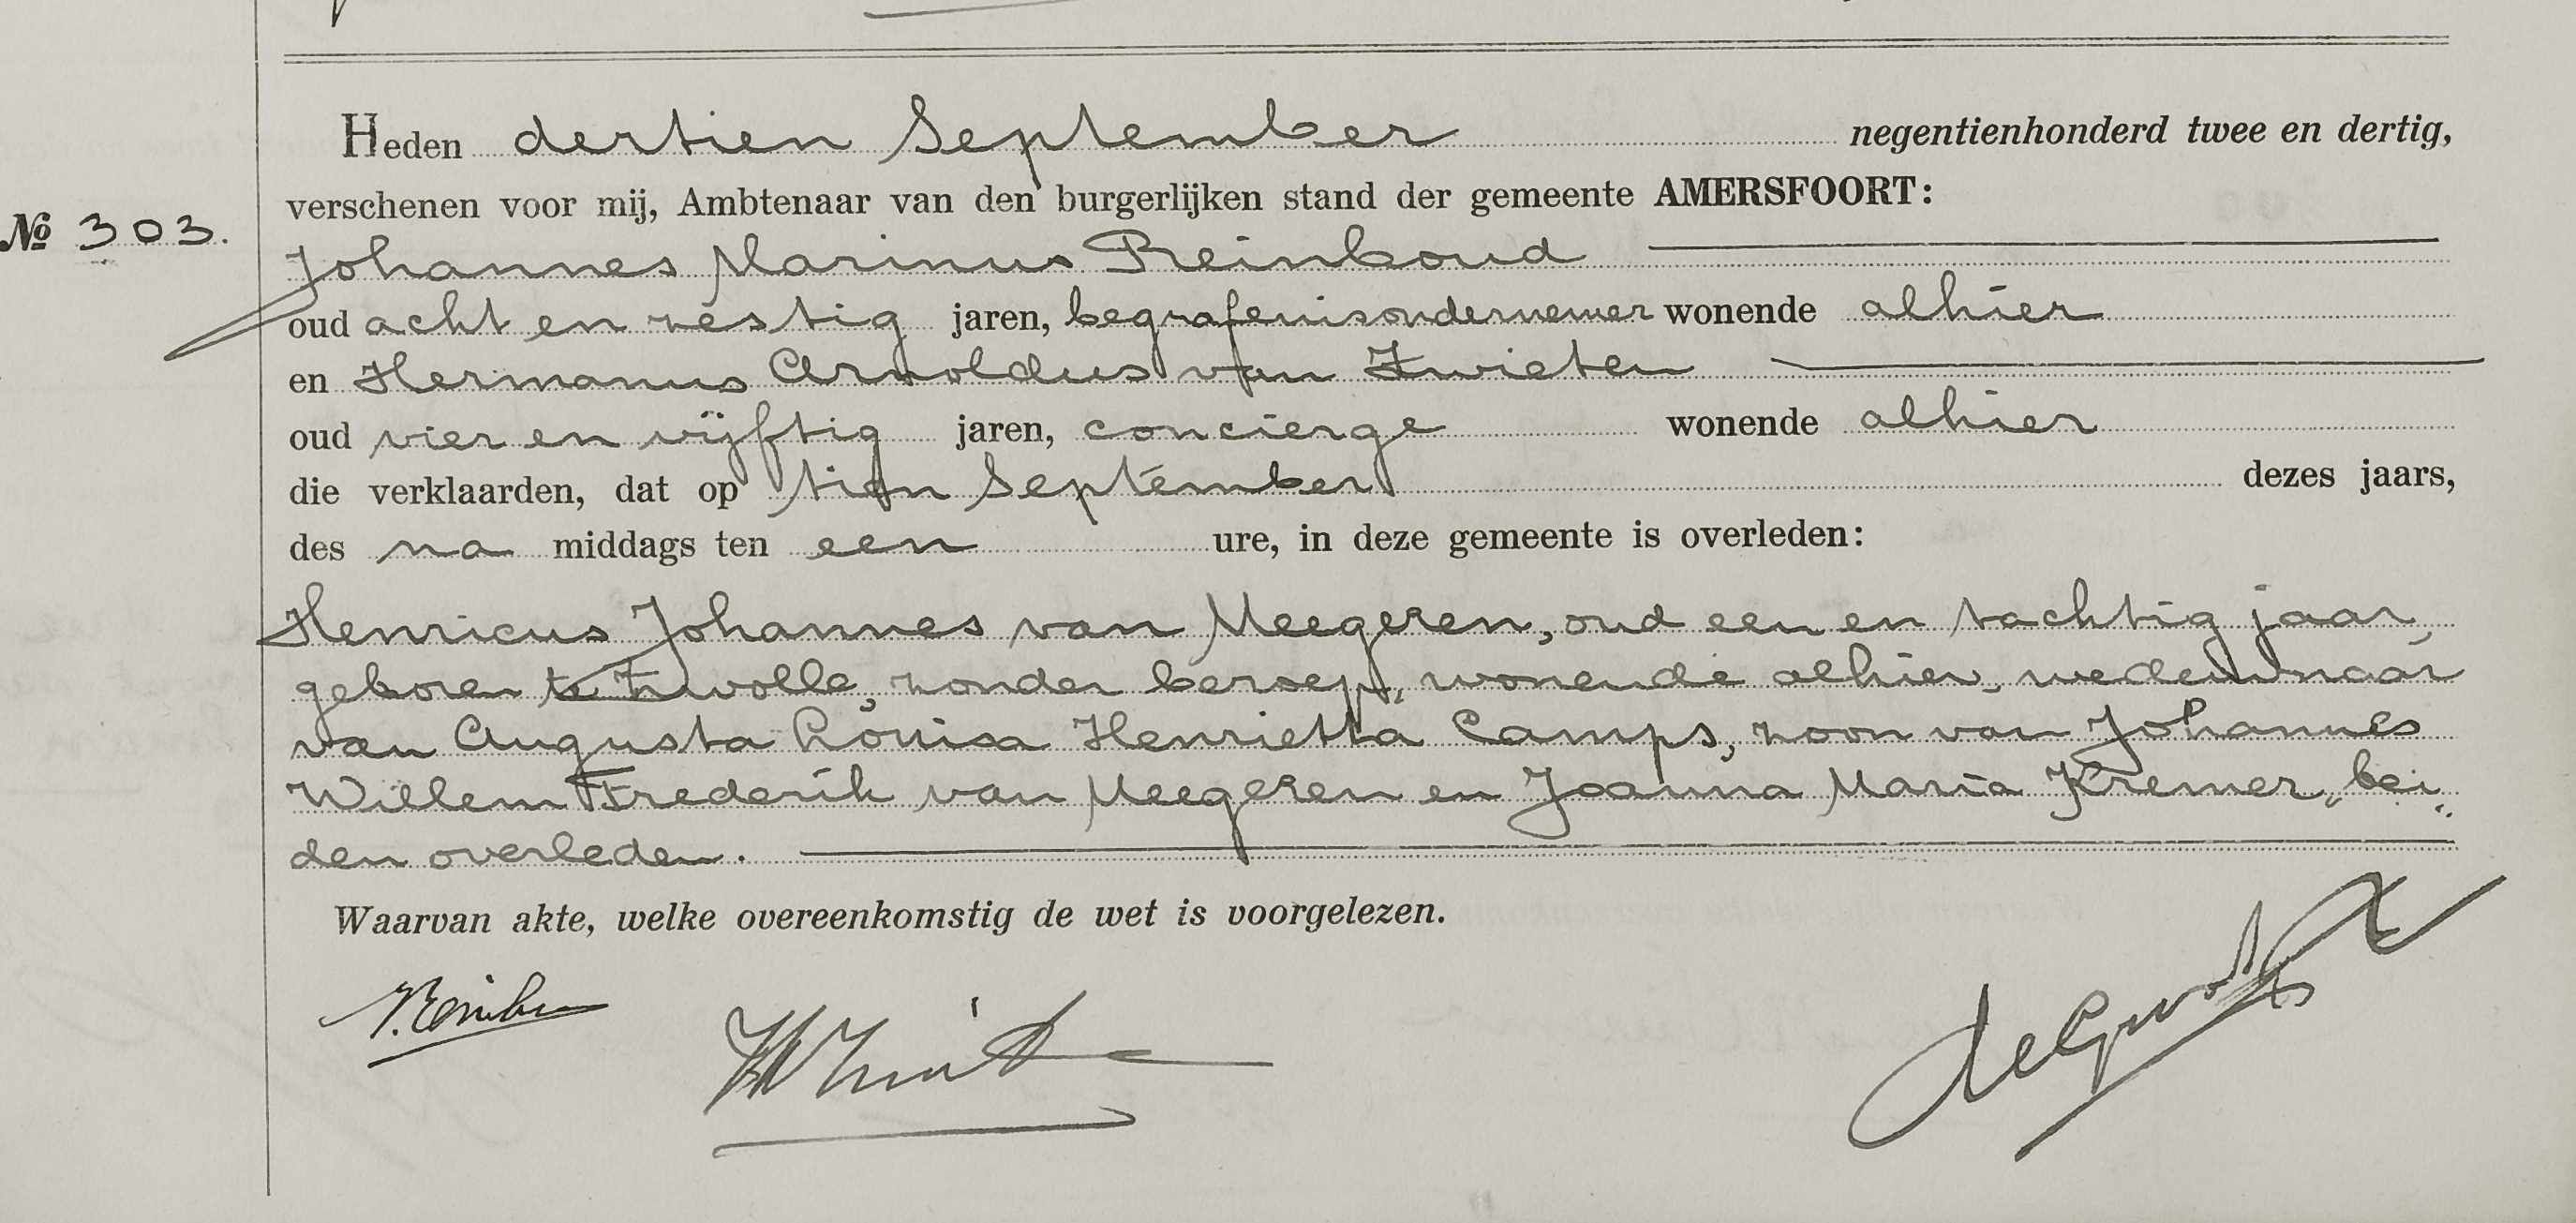 Heden dertien September negentienhonderd twee en dertig,
verschenen voor mij, Ambtenaar van den burgerlijken stand der gemeente AMERSFOORT:
№ 303.
Johannes Marinus Reinboud
oud acht en zestig jaren, begrafenisondernemer wonende alhier
en Hermanus Arnoldus van Zwieten
oud vier en vijftig jaren, concierge wonende alhier
die verklaarden, dat op tien September dezes jaars,
des na middags ten een ure, in deze gemeente is overleden:
Henricus Johannes van Meegeren, oud een en tachtig jaar,
geboren te Zwolle, zonder beroep, wonende alhier, weduwnaar
van Augusta Louisa Henrietta Camps, zoon van Johannes
Willem Frederik van Meegeren en Joanna Maria Kremer, bei
den overleden.
Waarvan akte, welke overeenkomstig de wet is voorgelezen.